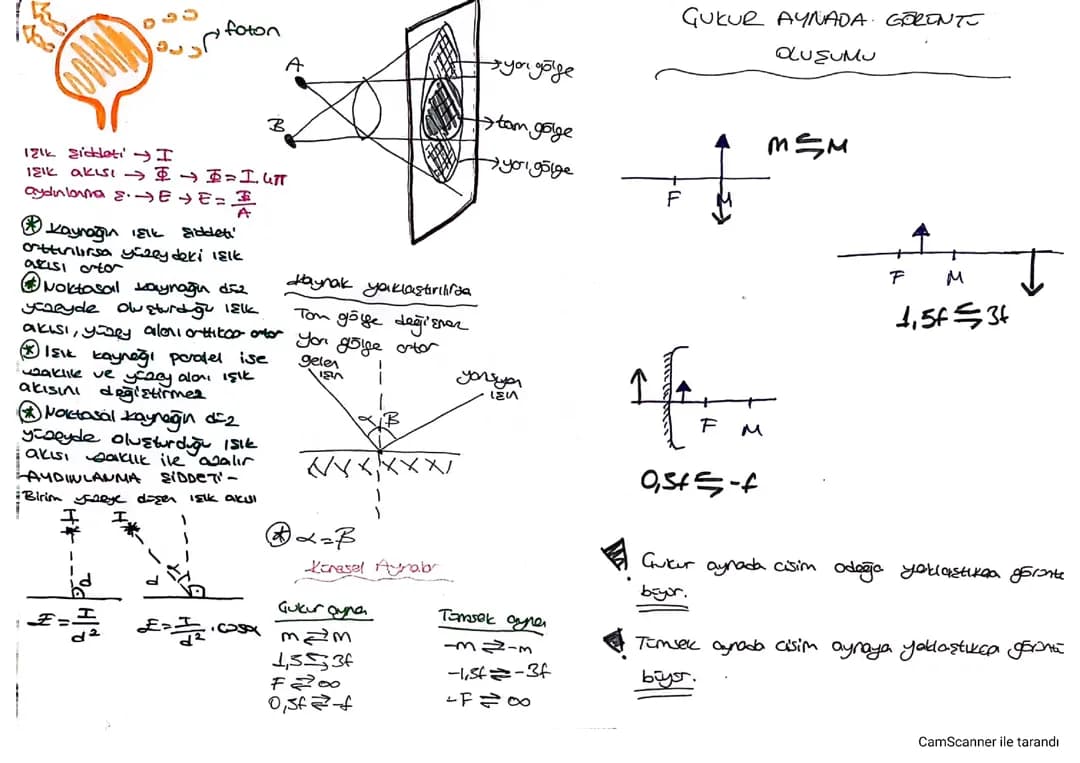 foton
Işık Şiddeti → I
Işık akısı → Φ → Φ = I.4π
aydınlanma ş. → E → E = Φ/A
* Kaynağın ışık şiddeti
arttırılırsa yüzeydeki ışık
akısı artar
* Noktasal kaynağın düz
yüzeyde oluşturduğu ışık
akısı, yüzey alanı arttıkça artar
* Işık kaynağı paralel ise
uzaklık ve yüzey alanı ışık
akısını değiştirmez
* Noktasal kaynağın düz
yüzeyde oluşturduğu ışık
akısı uzaklık ile azalır
-AYDINLANMA ŞİDDETİ-
Birim yüzeye düşen ışık akısı
I
I
d
d
E = I/d²
E = I/d² . cosα
A
B
yarı gölge
tam gölge
yarı gölge
Kaynak yaklaştırılırsa
Tam gölge değişmez
Yarı gölge artar
gelen
ışın
yansıyan
ışın
α B
* α = B
Küresel Aynalar
Çukur ayna
m ⇄ m
1,5 ⇆ 3f
F ⇄ ∞
0,5f ⇄ -f
Tümsek ayna
-m ⇄ -m
-1,5f ⇄ -3f
-F ⇄ ∞
ÇUKUR AYNADA GÖRÜNTÜ
OLUŞUMU
m ⇆ M
F M
F M
1,5f ⇆ 3f
F M
0,5f ⇆ -f
Çukur aynada cisim odağa yaklaştıkça görüntü
büyür.
Tümsek aynada cisim aynaya yaklaştıkça görüntü
büyür.
CamScanner ile tarandı